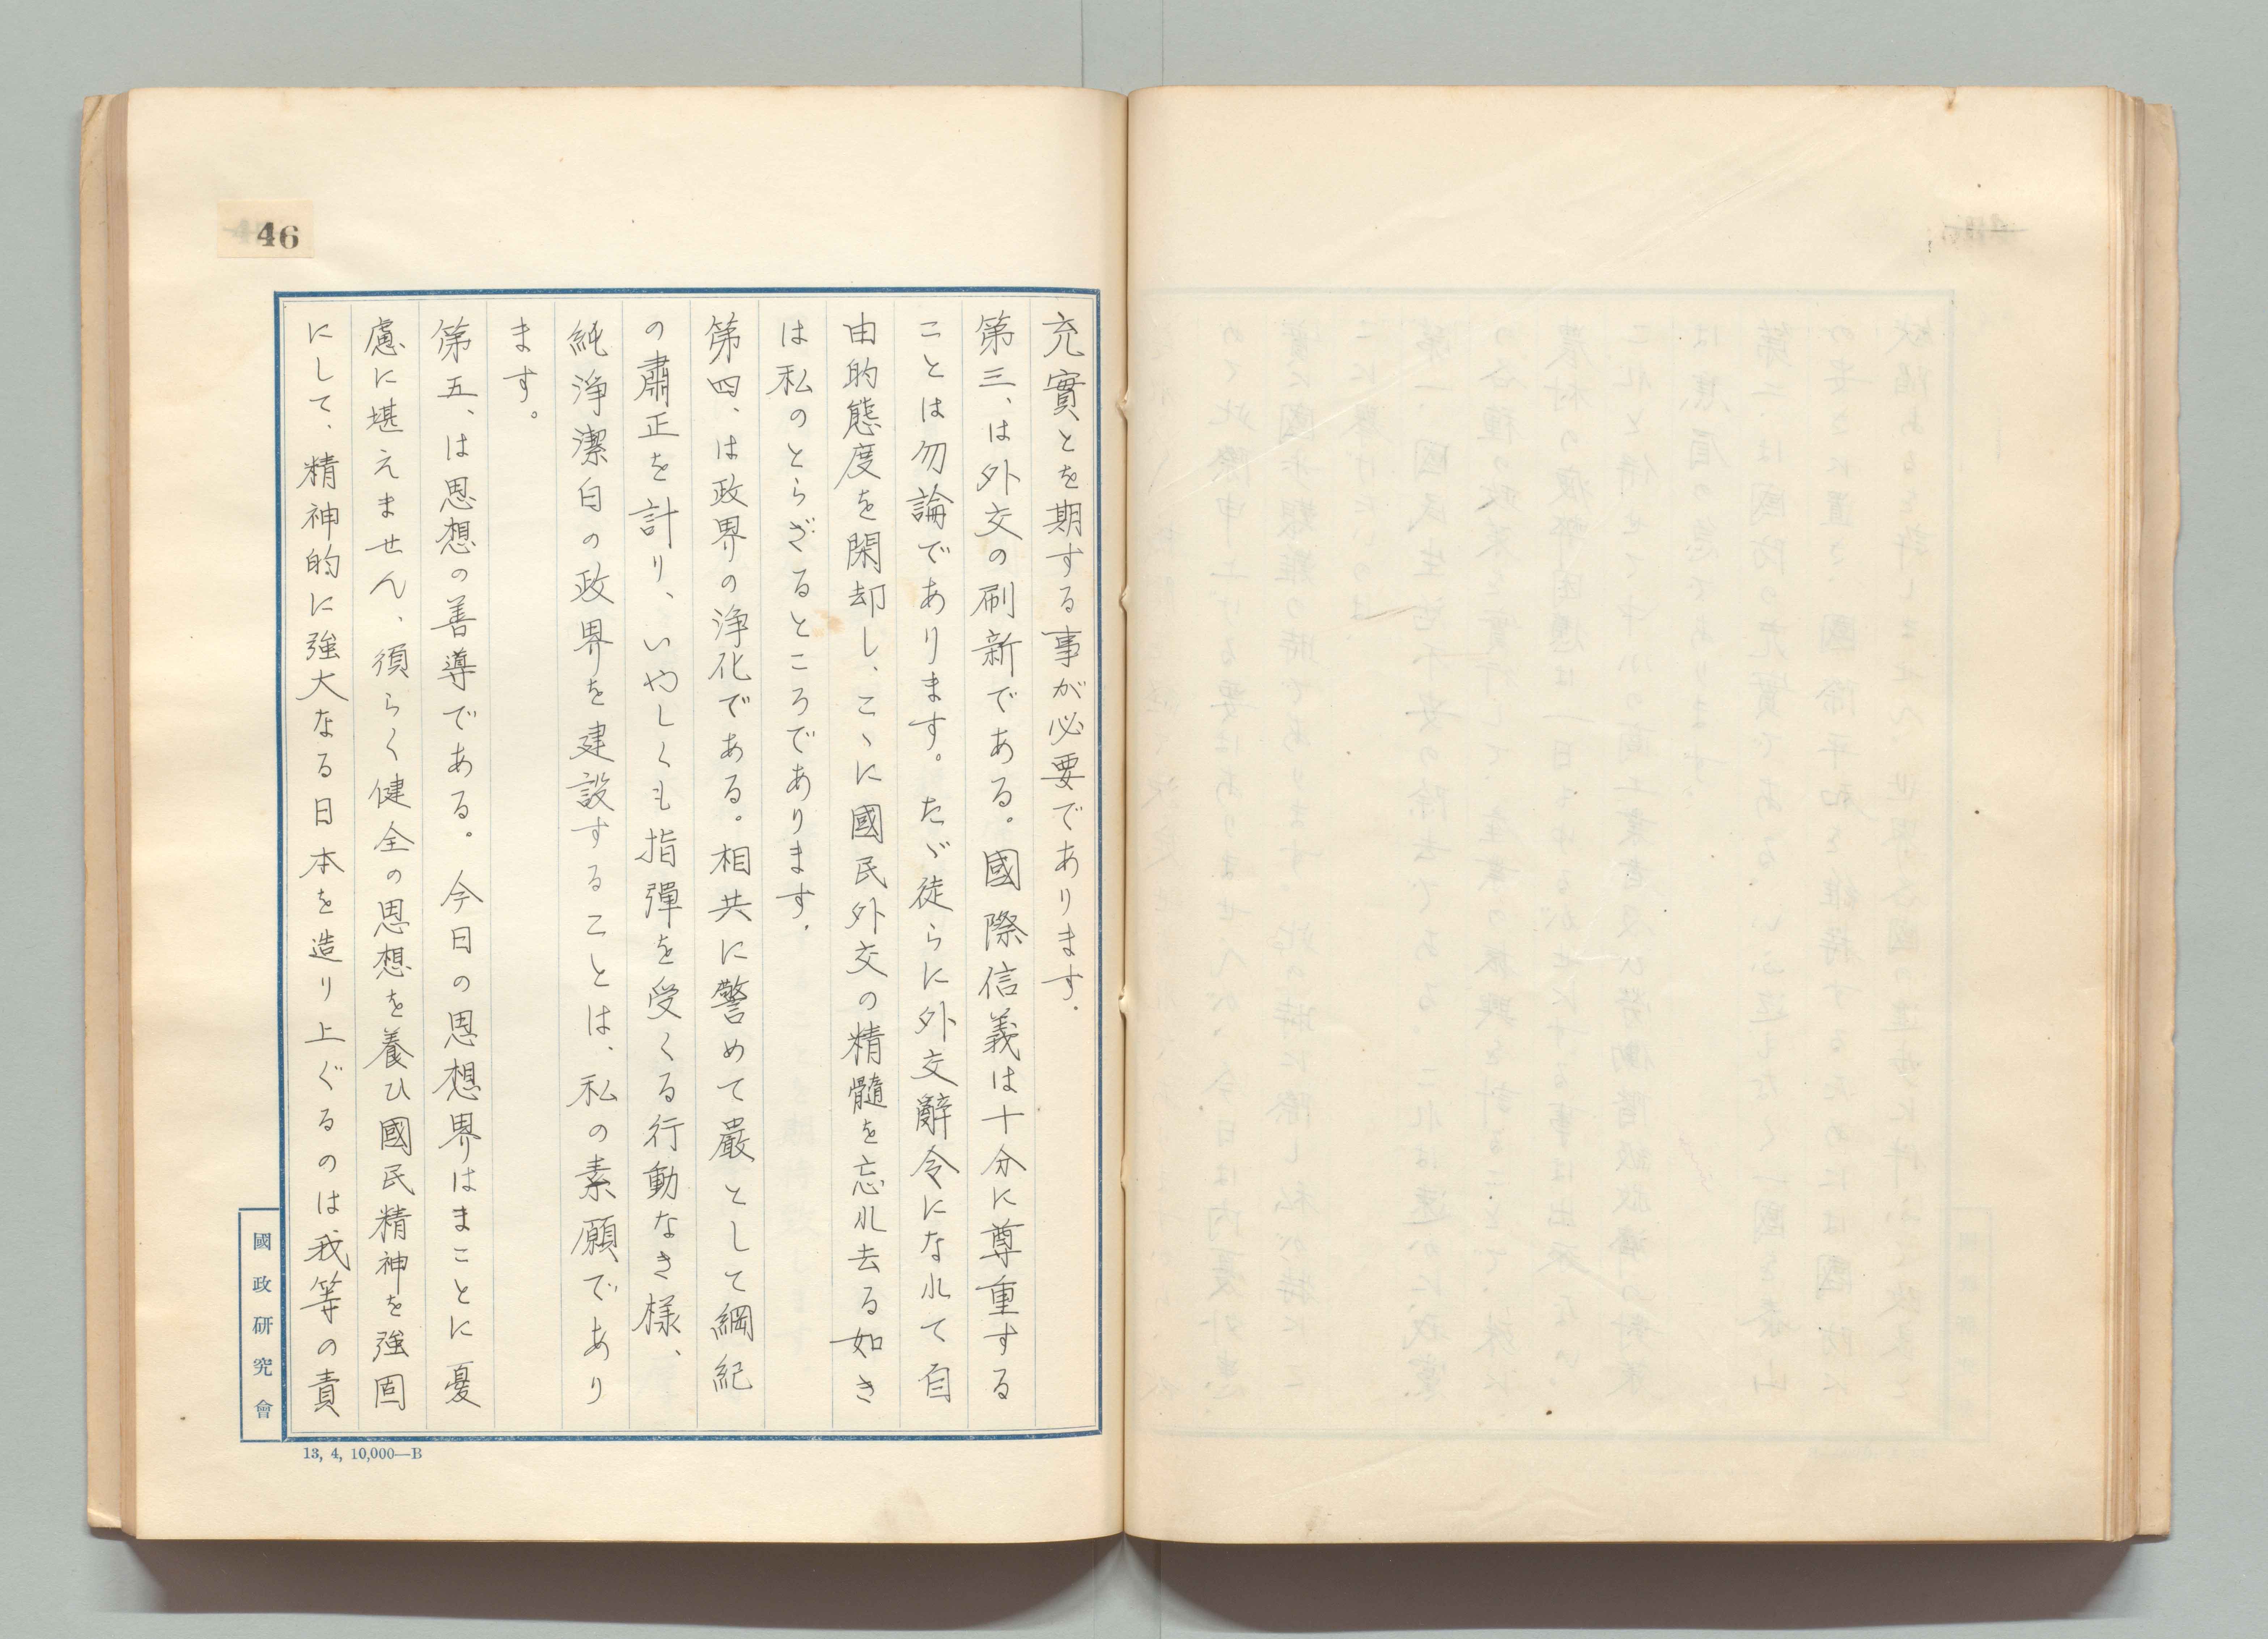 充實とを期する事が必要であります.
第三、は外交の刷新である。國際信義は十分に尊重する
ことは勿論であります。たゞ徒らに外交辭令になれて自
由的態度を閑却し、こゝに國民外交の精髓を忘れ去る如き
は私のとらざるところであります.
第四、は政界の浄化である。相共に警めて嚴として綱紀
の肅正を計り、いやしくも指彈を受くる行動なき様、
純浄潔白の政界を建設することは、私の素願であり
ます。
第五、は思想の善導である。今日の思想界はまことに憂
慮に堪えません、須らく健全の思想を養ひ國民精神を強固
にして、精神的に強大なる日本を造り上ぐるのは我等の責
46
國政研究會
13, 4, 10,000—B